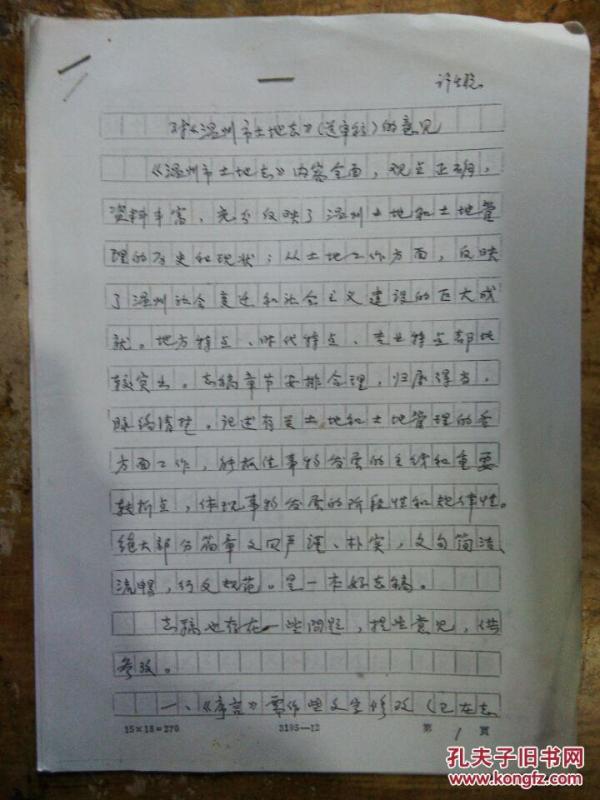 对《温州市土地志》(送审稿)的意见
《温州市土地志》内容全面，观点正确，
资料丰富，充分反映了温州土地和土地管
理的历史和现状；从土地工作方面，反映
了温州社会变迁和社会主义建设的巨大成
就。地方特点、时代特点、专业特点都比
较突出。志稿章节安排合理，归属得当，
脉络清楚。记述有关土地和土地管理的各
方面工作，能抓住事物发展的主线和重要
转折点，体现事物发展的阶段性和规律性。
绝大部分篇章文风严谨、朴实，文句简洁
流畅，行文规范。是一本好志稿。
志稿也存在一些问题，提些意见，供
参改。
一、《序言》需作些文字修改（已在志
15×18=270
3195—12
第 1 頁
孔夫子旧书网
www.kongfz.com